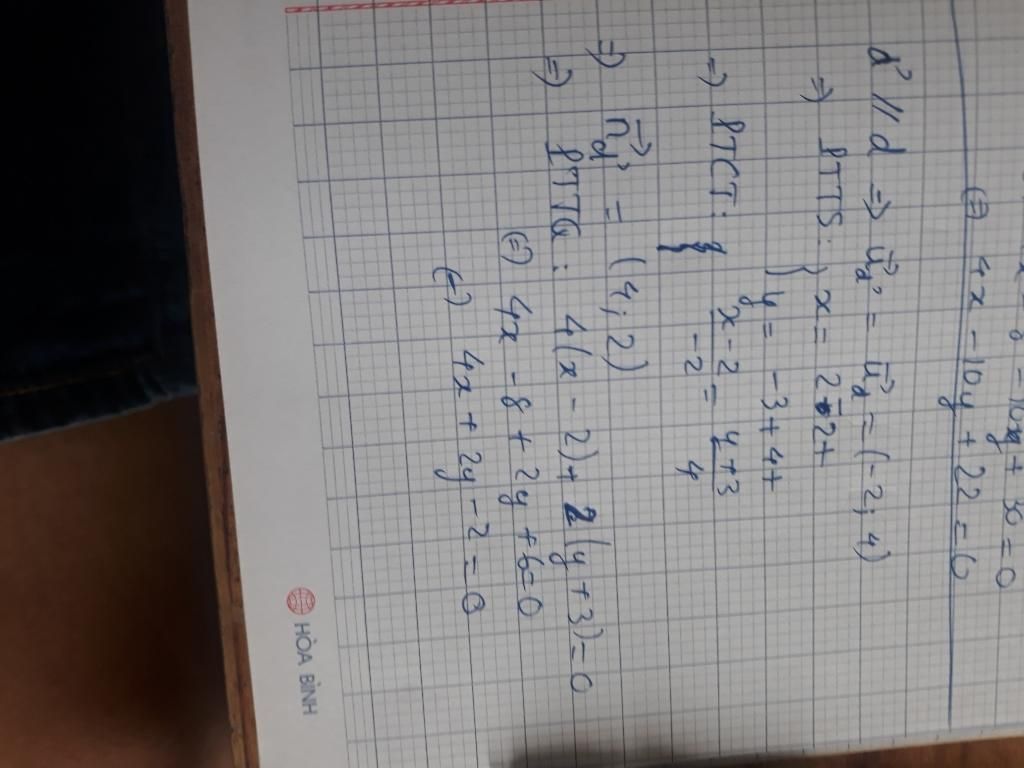 = 0
⇔ 4x - 10y + 22 = 0
d' // d ⇒ u⃗d' = u⃗d = (-2; 4)
⇒ PTTS: { x = 2 - 2t
y = -3 + 4t
⇒ PTCT: x - 2 / -2 = y + 3 / 4
⇒ n⃗d' = (4; 2)
⇒ PTTQ: 4(x - 2) + 2(y + 3) = 0
⇔ 4x - 8 + 2y + 6 = 0
⇔ 4x + 2y - 2 = 0
HÒA BÌNH